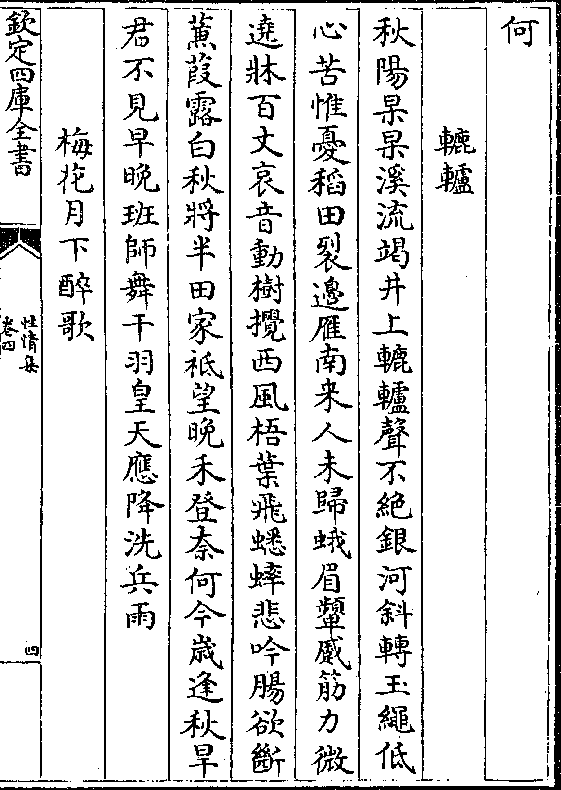 何
轆轤
秋陽杲杲溪流竭井上轆轤聲不絶銀河斜轉玉繩低
心苦惟憂稻田裂邉雁南来人未歸蛾眉顰蹙筋力微
遶牀百丈哀音動樹攪西風梧葉飛蟋蟀悲吟腸欲斷
蒹葭露白秋將半田家祗望晩禾登奈何今歳逢秋旱
君不見早晩班師舞干羽皇天應降洗兵雨
梅花月下醉歌
欽定四庫全書
性情集
卷四
四